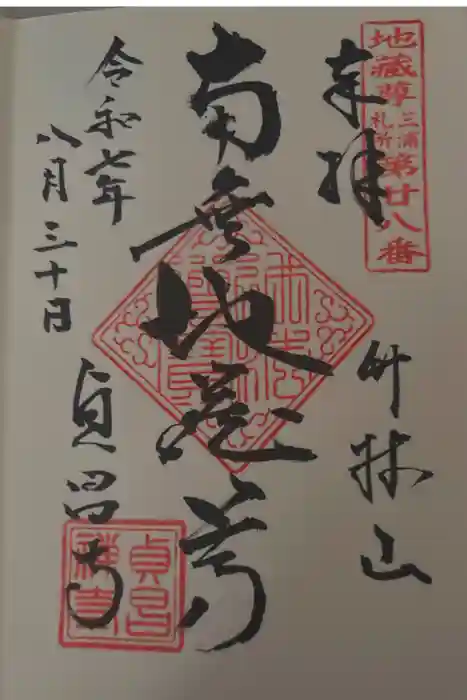 地蔵尊
三浦
札所
第廿八番
奉拝
竹林山
南無地蔵尊
令和七年
八月三十日
貞昌寺
貞昌
禅寺